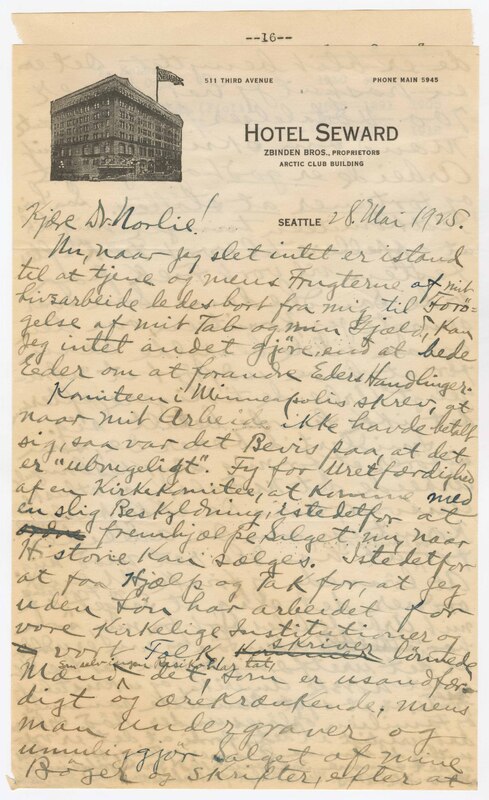 --16--
511 THIRD AVENUE
PHONE MAIN 5945
HOTEL SEWARD
ZBINDEN BROS., PROPRIETORS
ARCTIC CLUB BUILDING
Kjære Dr. Norlie!
SEATTLE 28. Mai 1925.
Nu, naar jeg slet intet er istand
til at tjene og mens Frugterne af mit
livsarbeide ledes bort fra mig til Forø-
gelse af mit Tab og min Gjæld, kan
jeg intet andet gjøre, end at bede
Eder om at forandre Eders Handlinger.
Komiteen i Minneapolis skrev, at
naar mit Arbeide ikke havde betalt
sig, saa var det Bevis paa, at det
er "ubrugeligt". Fy for Uretfærdighed
af en Kirkekomitee, at komme med
en slig Beskyldning, istedetfor at
fremhjælpe Salget nu, naar
Historie kan sælges. Istedetfor
at faa Hjælp og Tak for, at jeg
uden Løn har arbeidet for
vore Kirkelige Institutioner og
vort Folk skriver lønnede
Mænd det, som er usandfær-
digt og ærekrænkende, mens
man undergraver og
umuliggjør Salget af mine
Bøger og Skrifter, efter at